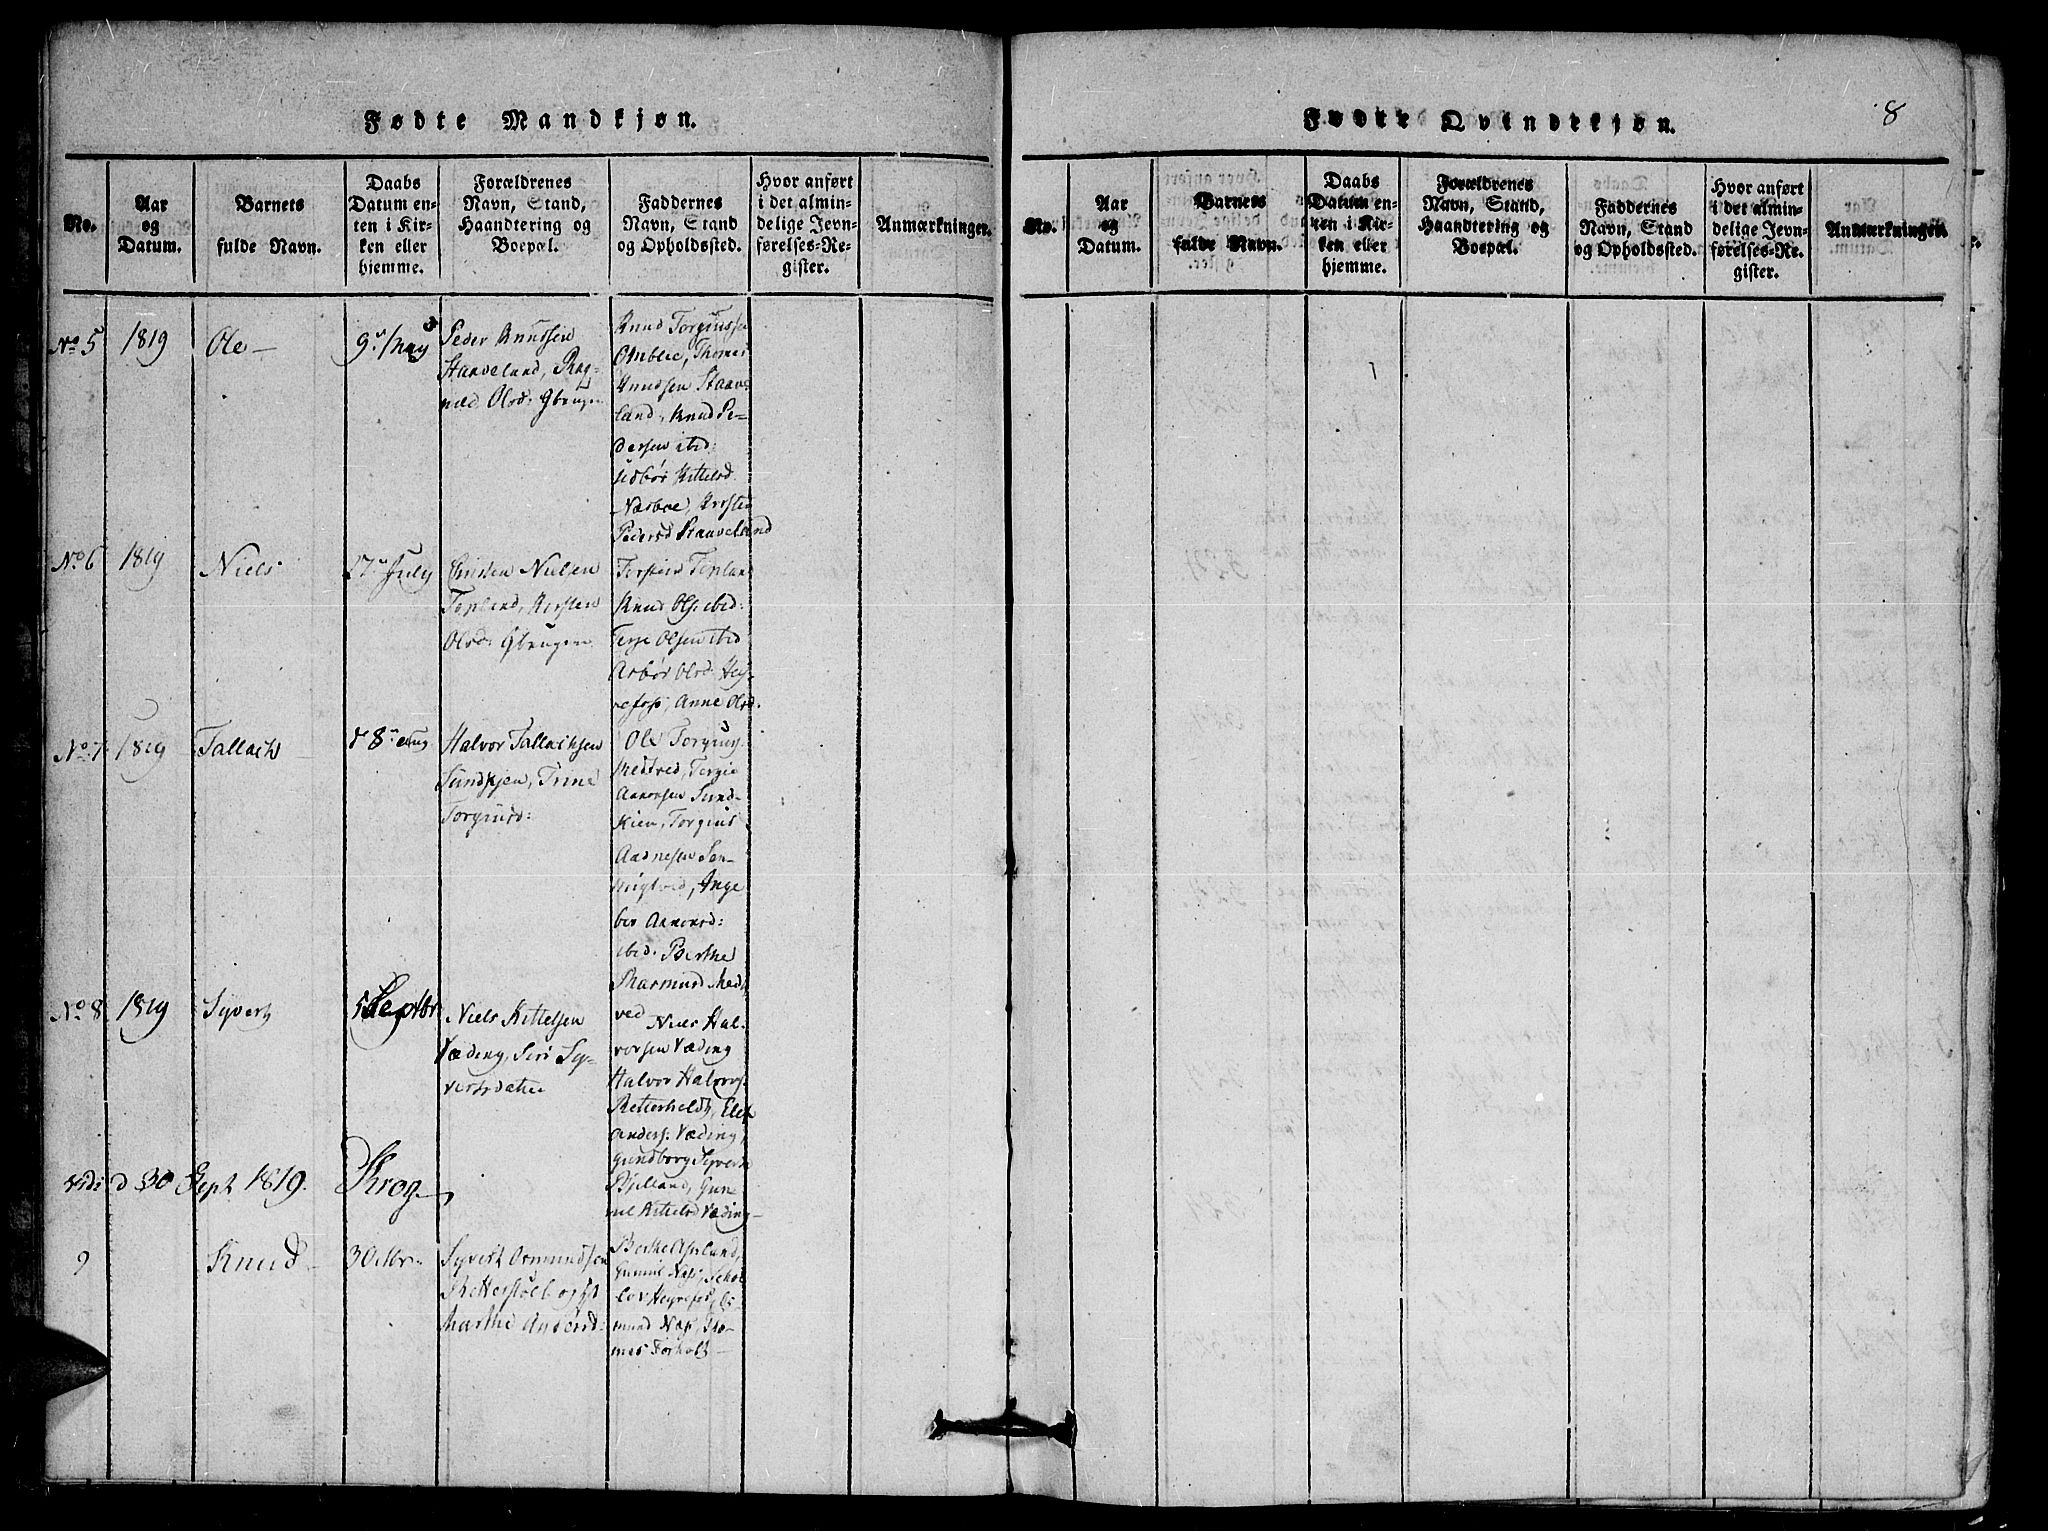 Fødte Mandkjøn.
No.
Aar
og
Datum.
Barnets
fulde Navn.
Daabs
Datum en-
ten i Kir-
ken eller
hjemme.
Forældrenes
Navn, Stand,
Haandtering og
Boepæl.
Faddernes
Navn, Stand
og Opholdssted.
Hvor anført
i det almin-
delige Jevn-
førelses-Re-
gister.
Anmærkninger.
No 5
1819
Ole
9 May
Peder Knudsen
Staaveland, Rag-
nild Olsd:
Knud Torgiuss
Omblie, Thomas
Knudsen Staave
land, Knud Pe-
dersen ibid:
Kittelsd
Næsboe, Kirsten
Pedersd Staaveland
No 6
1819
Niels
17 July
Christen Nielsen
Topland, Kirsten
Olsd:
Torsteen Topland
Knud Ols ibid:
Terje Olsen ibid
Asbør Olsd: Hey-
refoss, Anne Olsd.
No 7
1819
Tallach
8 Aug
Halvor Tallachsen
Sundkjen, Trine
Torgiusd:
Ole Torgiuss.
Tergie
Aanonsen Sund-
kien, Torgius
Aadnesen
Inge
ber Aanonsd:
ibid. Berthe

No 8
1819
Syvert
5 Septbr
Niels Kittelsen
Væding, Siri Sy-
vertsdatter
Niels Hal-
vorsen Væding
Halvor Halvors.
Retterholdt,
Anders: Væding,
Gundborg Syverts
Gun-
nil Kittelsd Væding
Vidi d 30 Sept 1819. Krog
9
Knud
3 Octbr
Syvert Osmundsen
og
Marthe Andersd:
Berthe
Gunnil
lev Heyrefos, Os-
mund Tho-
mas
Fødte Qvindekjøn.
8
No.
Aar
og
Datum.
Barnets
fulde Navn.
Daabs
Datum en-
ten i Kir-
ken eller
hjemme.
Forældrenes
Navn, Stand,
Haandtering og
Boepæl.
Faddernes
Navn, Stand
og Opholdssted.
Hvor anført
i det almin-
delige Jevn-
førelses-Re-
gister.
Anmærkninger.